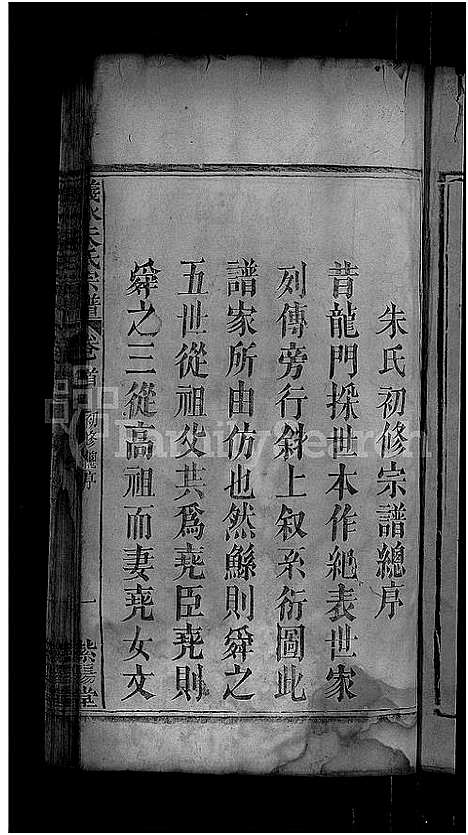 朱氏初修宗譜總序
昔龍門採世本作紀表世家
列傳旁行斜上叙系衍圖此
譜家所由仿也然鯀則舜之
五世從祖父共為堯臣堯則
舜之三從高祖而妻堯女文
義水朱氏宗譜 卷首 初修總序 一 紫陽堂
FamilySearch